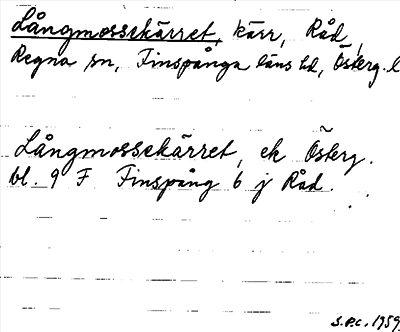 Långmossekärret, kärr, Råd,
Regna sn, Finspånga läns hd, Österg. l
Långmossekärret, ek Österg.
bl. 9 F Finspång 6 j Råd.
S.P.C. 1959